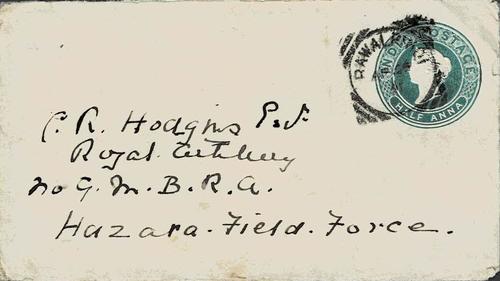 C. R. Hodgins Esqr
Royal Artillery
no 9. M. B. R. A.
Hazara. Field. Force.
INDIA POSTAGE
HALF ANNA